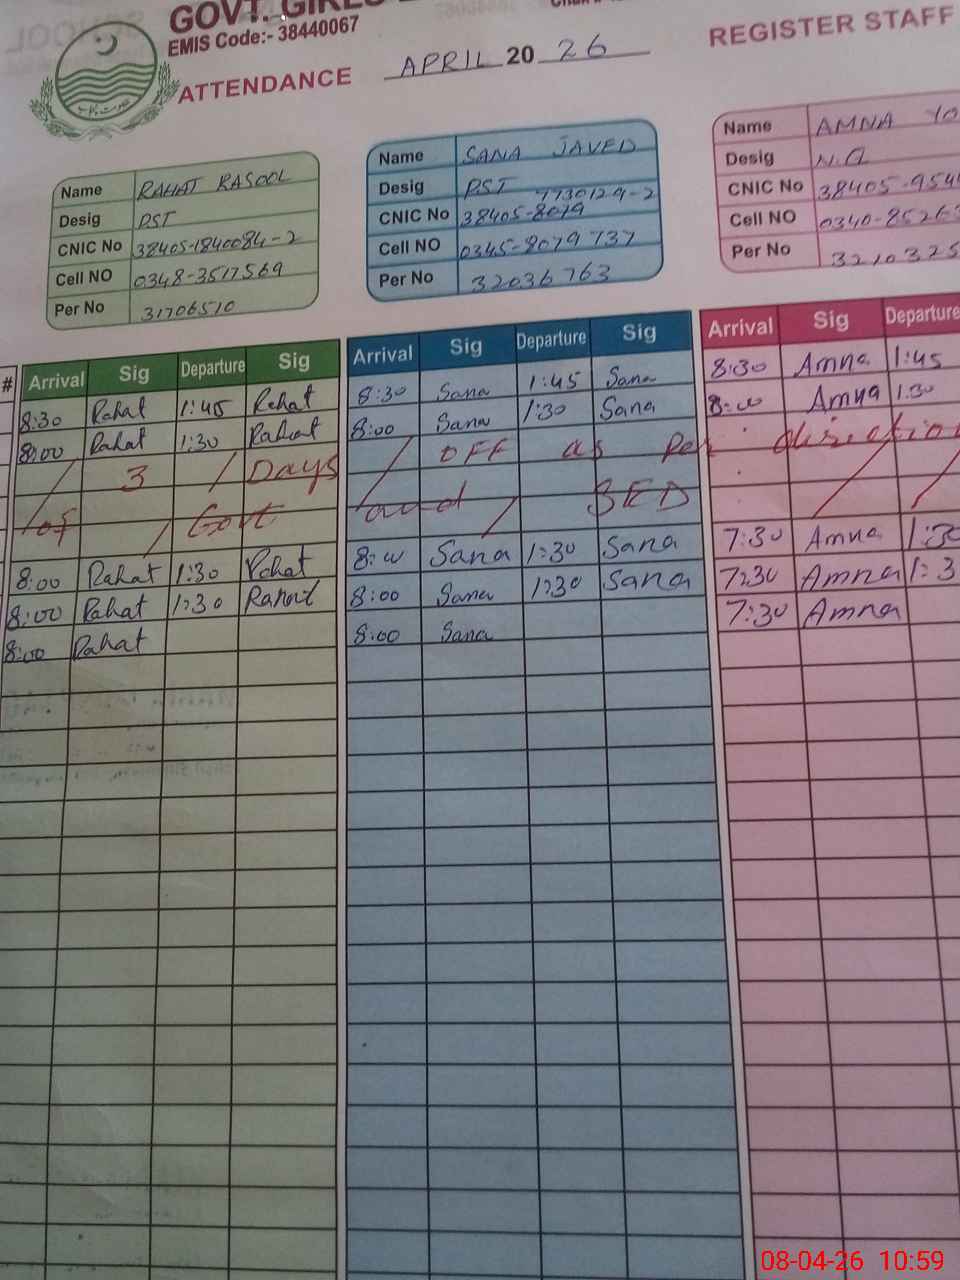 GOVT. GIRLS
EMIS Code:- 38440067
ATTENDANCE APRIL 20 26 REGISTER STAFF
Name RAHAT RASOOL
Desig PST
CNIC No 38405-1840084-2
Cell NO 0348-3517569
Per No 31706510
Name SANA JAVED
Desig PST 7730129-2
CNIC No 38405-8079
Cell NO 0345-8079737
Per No 32036763
Name AMNA
Desig N.Q
CNIC No 38405-954
Cell NO 0340-8526
Per No 3210325
# Arrival Sig Departure Sig Arrival Sig Departure Sig Arrival Sig Departure
8:30 Rahat 1:45 Rahat 8:30 Sana 1:45 Sana 8:30 Amna 1:45
8:00 Rahat 1:30 Rahat 8:00 Sana 1:30 Sana 8:00 Amna 1:30
3 Days OFF as per direction
of Govt and SED
8:00 Rahat 1:30 Rahat 8:00 Sana 1:30 Sana 7:30 Amna 1:30
8:00 Rahat 1:30 Rahat 8:00 Sana 1:30 Sana 7:30 Amna 1:3
8:00 Rahat 8:00 Sana 7:30 Amna
08-04-26 10:59